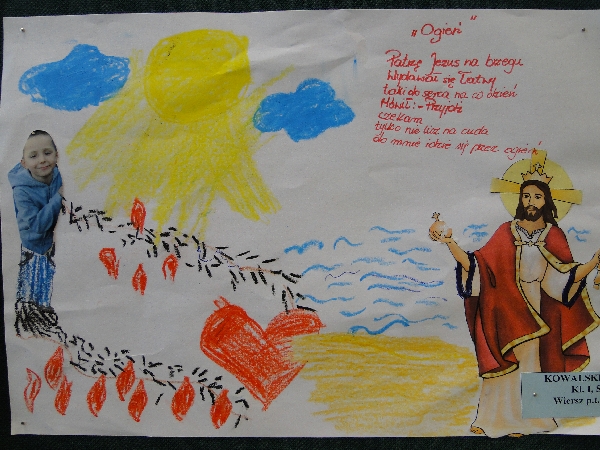 „Ogień"
Patrzę Jezus na brzegu
Wydawał się łatwy
taki do serca na co dzień
Mówił: - Przyjdź
czekam
tylko nie licz na cuda
do mnie idzie się przez ogień
KOWALSK
Kl. I, S
Wiersz p.t.